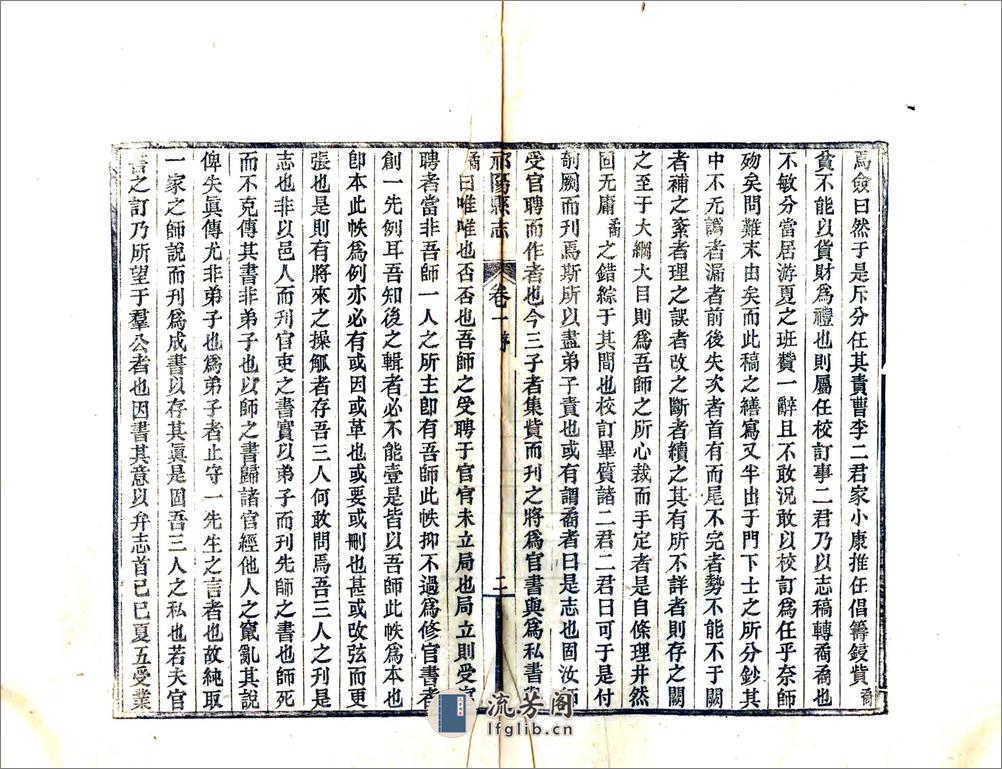 焉僉曰然于是斥分任其責曹李二君家小康推任倡籌鋟貲矞
貧不能以貨財爲禮也則屬任校訂事二君乃以志稿轉矞矞也
不敏分當居游夏之班賛一辭且不敢況敢以校訂爲任乎奈師
殁矣問難末由矣而此稿之繕寫又半出于門下士之所分鈔其
中不无譌者漏者前後失次者首有而尾不完者勢不能不于闕
者補之紊者理之誤者改之斷者續之其有所不詳者則存之闕
之至于大綱大目則爲吾師之所心裁而手定者是自條理井然
回无庸矞之錯綜于其間也校訂畢質諸二君二君曰可于是付
剞劂而刊焉斯所以盡弟子責也或有謂矞者曰是志也固汝師
受官聘而作者也今三子者集貲而刊之將爲官書與爲私書
祁陽縣志 卷一序 二
矞曰唯唯也否否也吾師之受聘于官官未立局也局立則受
聘者當非吾師一人之所主卽有吾師此帙抑不過爲修官書者
創一先例耳吾知後之輯者必不能壹是皆以吾師此帙爲本也
卽本此帙爲例亦必有或因或革也或要或刪也甚或改弦而更
張也是則有將來之操觚者存吾三人何敢問焉吾三人之刊是
志也非以邑人而刊官吏之書實以弟子而刊先師之書也師死
而不克傳其書非弟子也以師之書歸諸官經他人之竄亂其說
俾失眞傳尤非弟子也爲弟子者止守一先生之言者也故純取
一家之師說而刊爲成書以存其眞是固吾三人之私也若夫官
書之訂乃所望于羣公者也因書其意以弁志首己巳夏五受業
流芳阁
lfglib.cn